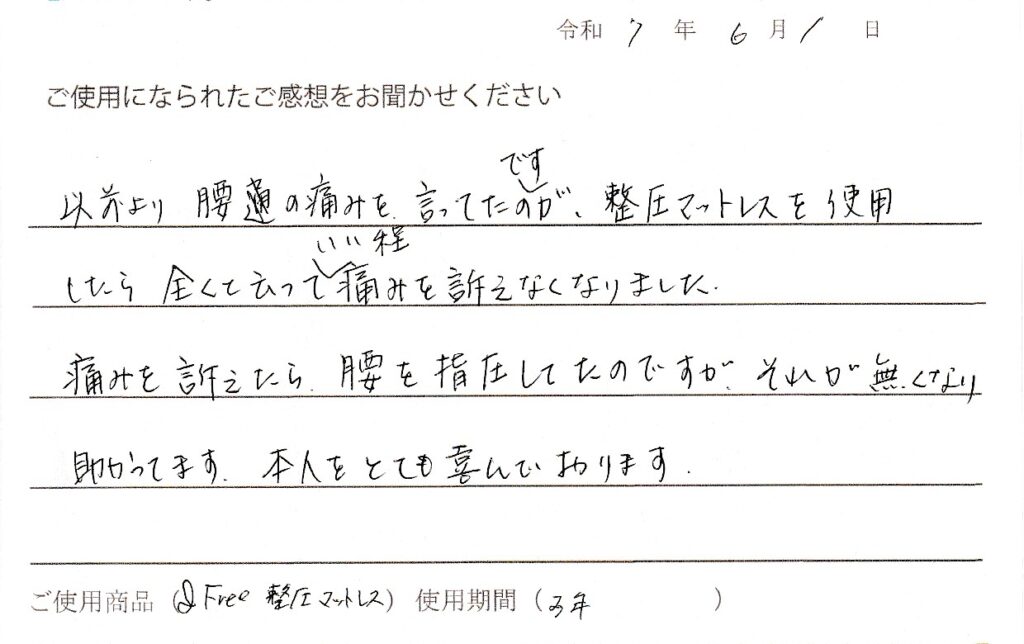 令和 7 年 6 月 1 日
ご使用になられたご感想をお聞かせください
以前より 腰の痛みを、言ってたのですが、整圧マットレスを使用
したら 全くと云っていい程痛みを訴えなくなりました.
痛みを訴えたら、腰を指圧してたのですが、それが無くなり
助かってます. 本人もとても喜んでおります.
ご使用商品 (Free 整圧マットレス) 使用期間 ( 年 )